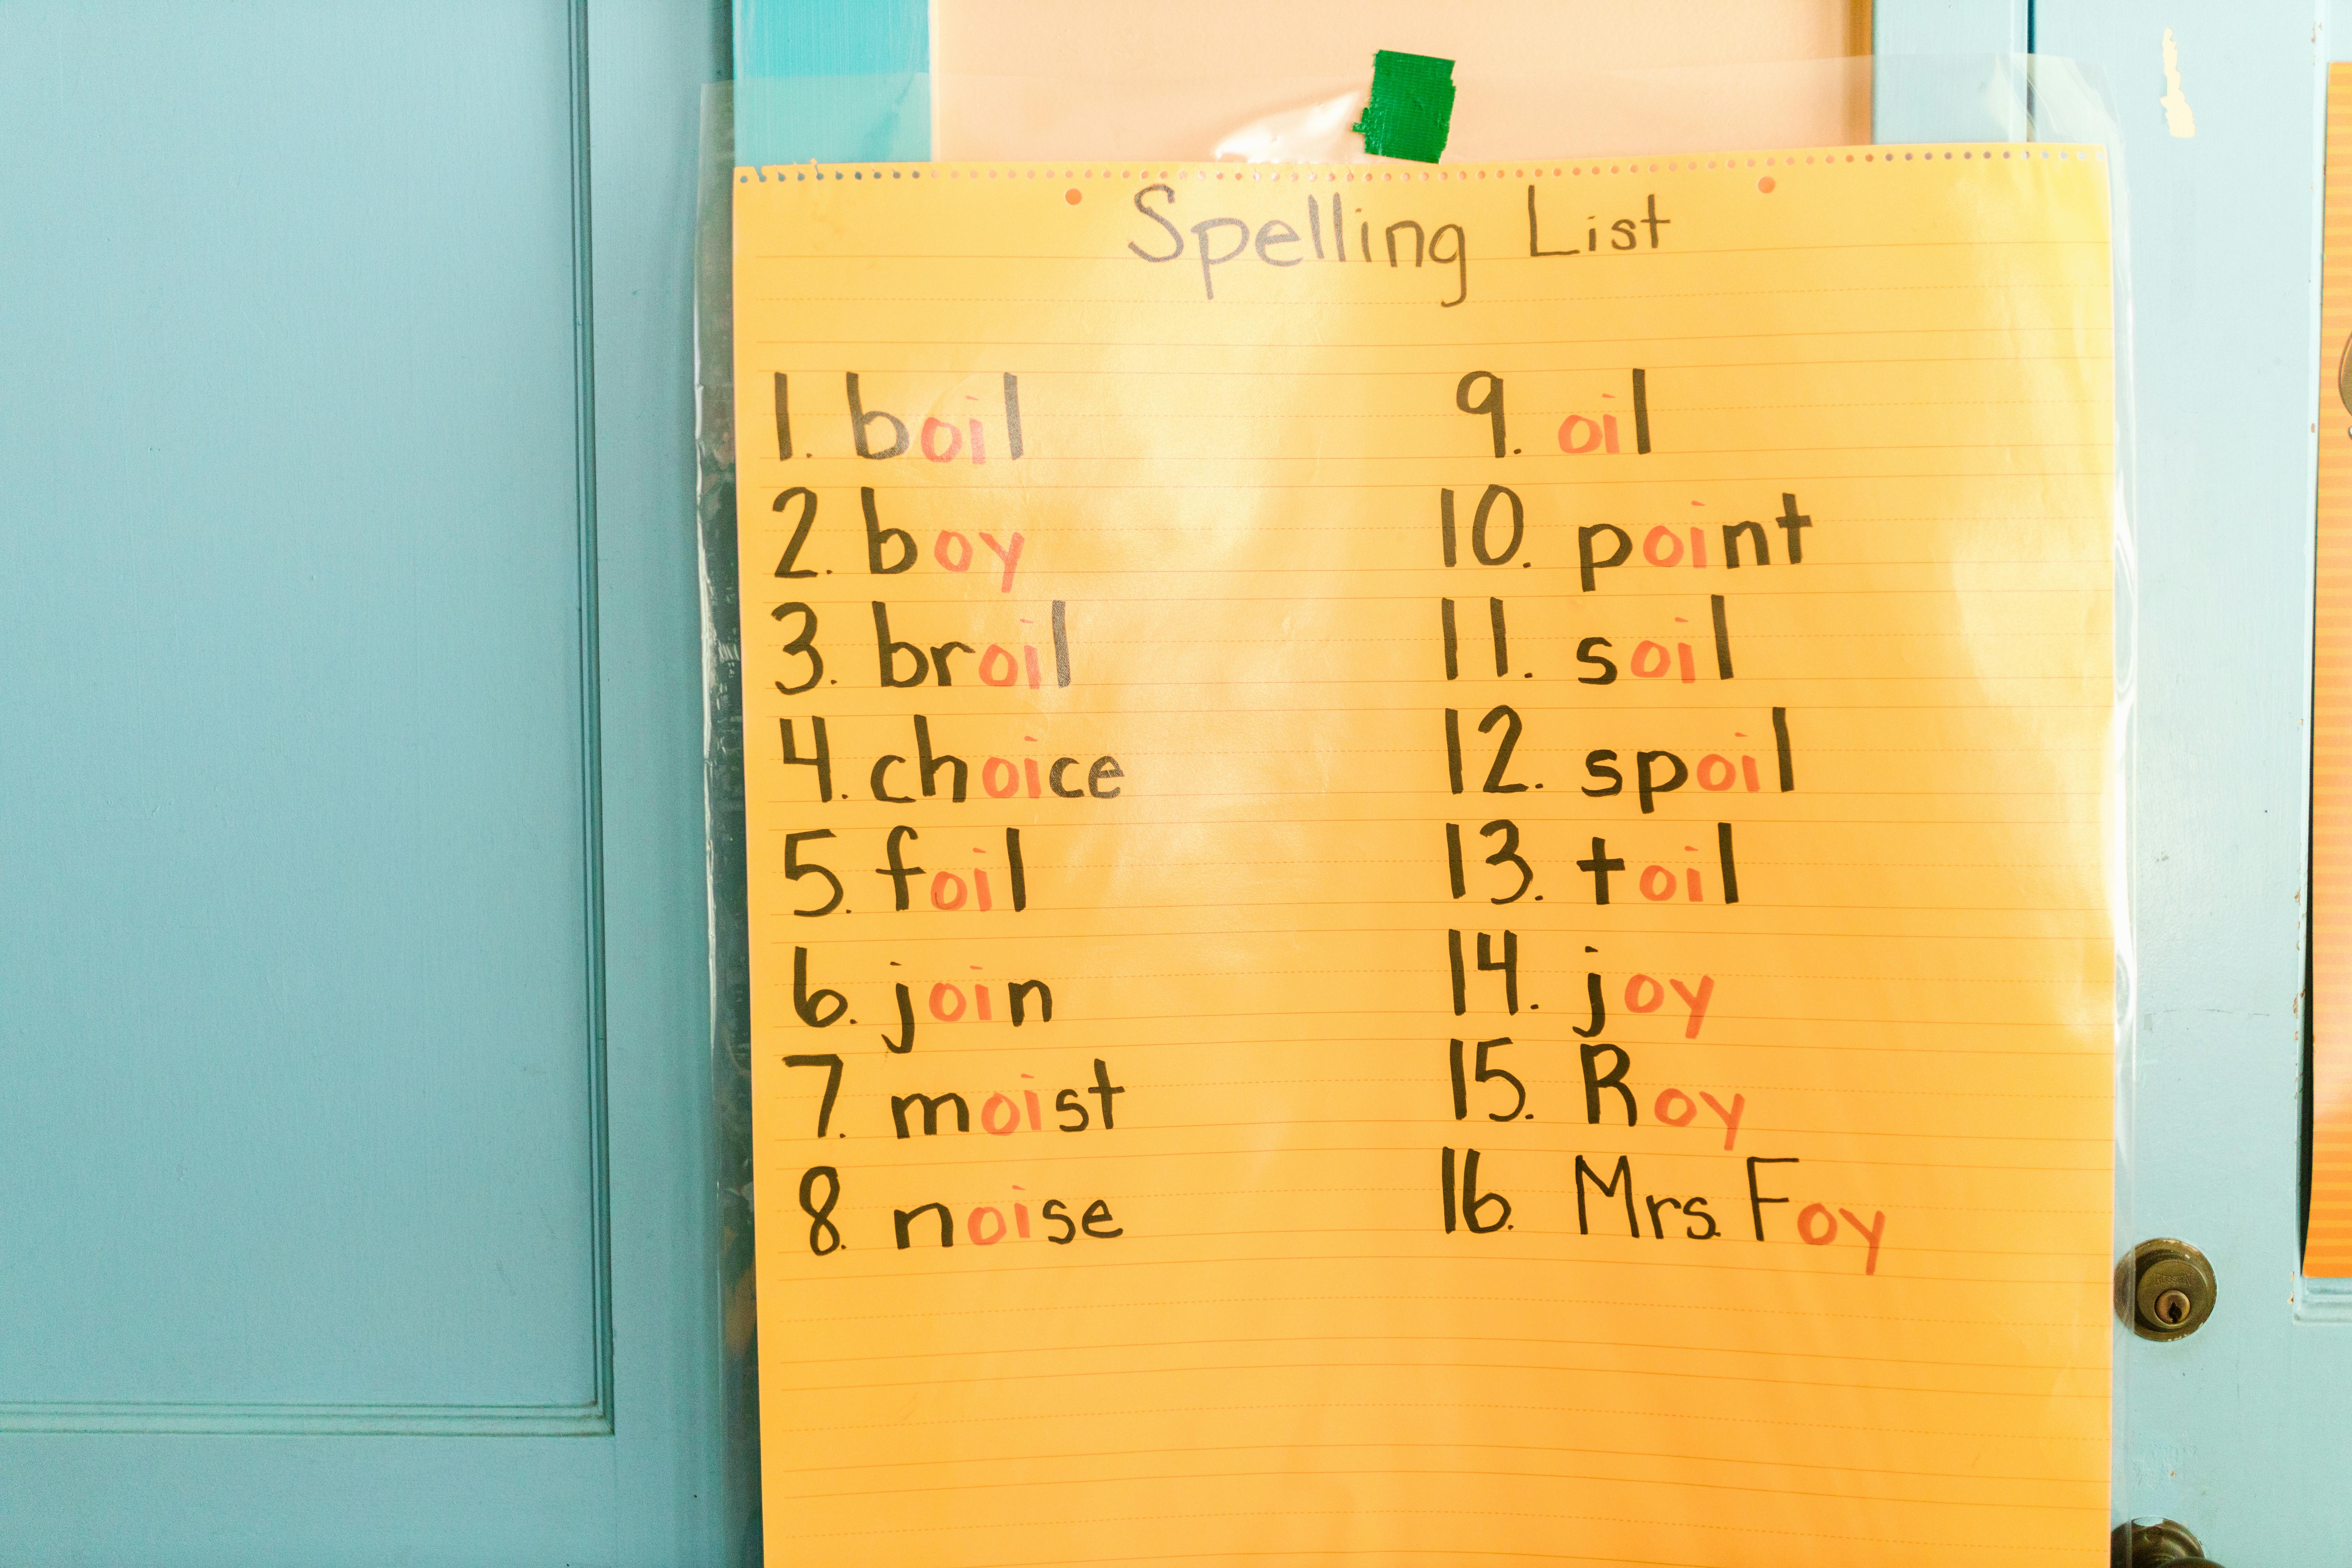 Spelling List
1. boil
2. boy
3. broil
4. choice
5. foil
6. join
7. moist
8. noise
9. oil
10. point
11. soil
12. spoil
13. toil
14. joy
15. Roy
16. Mrs. Foy